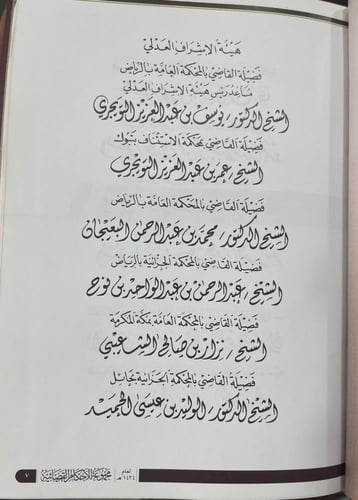 هيئة الإشراف العدلي
فضيلة القاضي بالمحكمة العامة بالرياض
مساعد رئيس هيئة الإشراف العدلي
الشيخ الدكتور/ يوسف بن عبد العزيز التويجري
فضيلة القاضي بمحكمة الاستئناف بتبوك
الشيخ/ عمر بن عبد العزيز التويجري
فضيلة القاضي بالمحكمة العامة بالرياض
الشيخ الدكتور/ محمد بن عبد الرحمن البعيجان
فضيلة القاضي بالمحكمة الجزائية بالرياض
الشيخ/ عبد الرحمن بن عبد الواحد بن نوح
فضيلة القاضي بالمحكمة العامة بمكة المكرمة
الشيخ/ نزار بن صالح الشاعيبي
فضيلة القاضي بالمحكمة الجزائية بحائل
الشيخ الدكتور/ الوليد بن عيسى الحميد
لعام
١٤٣٤هـ
مجموعة الأحكام القضائية
٧